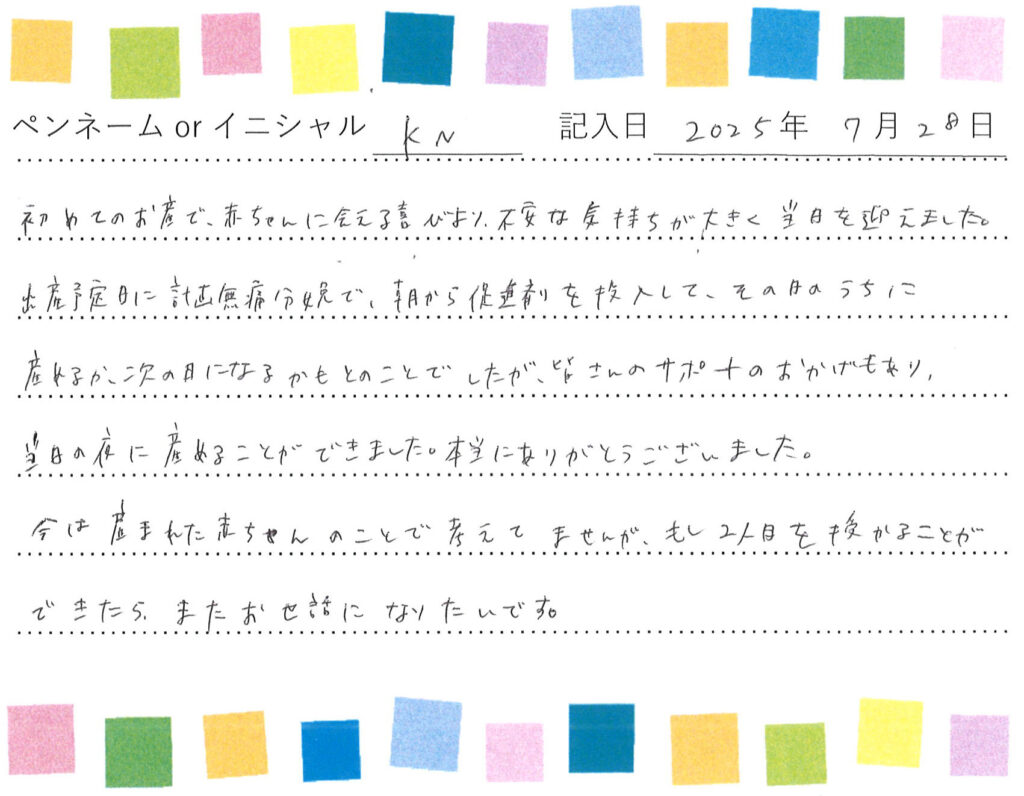 ペンネーム or イニシャル KN 記入日 2025年 7月28日
初めてのお産で、赤ちゃんに会える喜びより、不安な気持ちが大きく当日を迎えました。
出産予定日に計画無痛分娩で、朝から促進剤を投入して、その日のうちに
産めるか、次の日になるかもとのことでしたが、皆さんのサポートのおかげもあり、
当日の夜に産めることができました。本当にありがとうございました。
今は産まれた赤ちゃんのことで考えてませんが、もし2人目を授かることが
できたら、またお世話になりたいです。